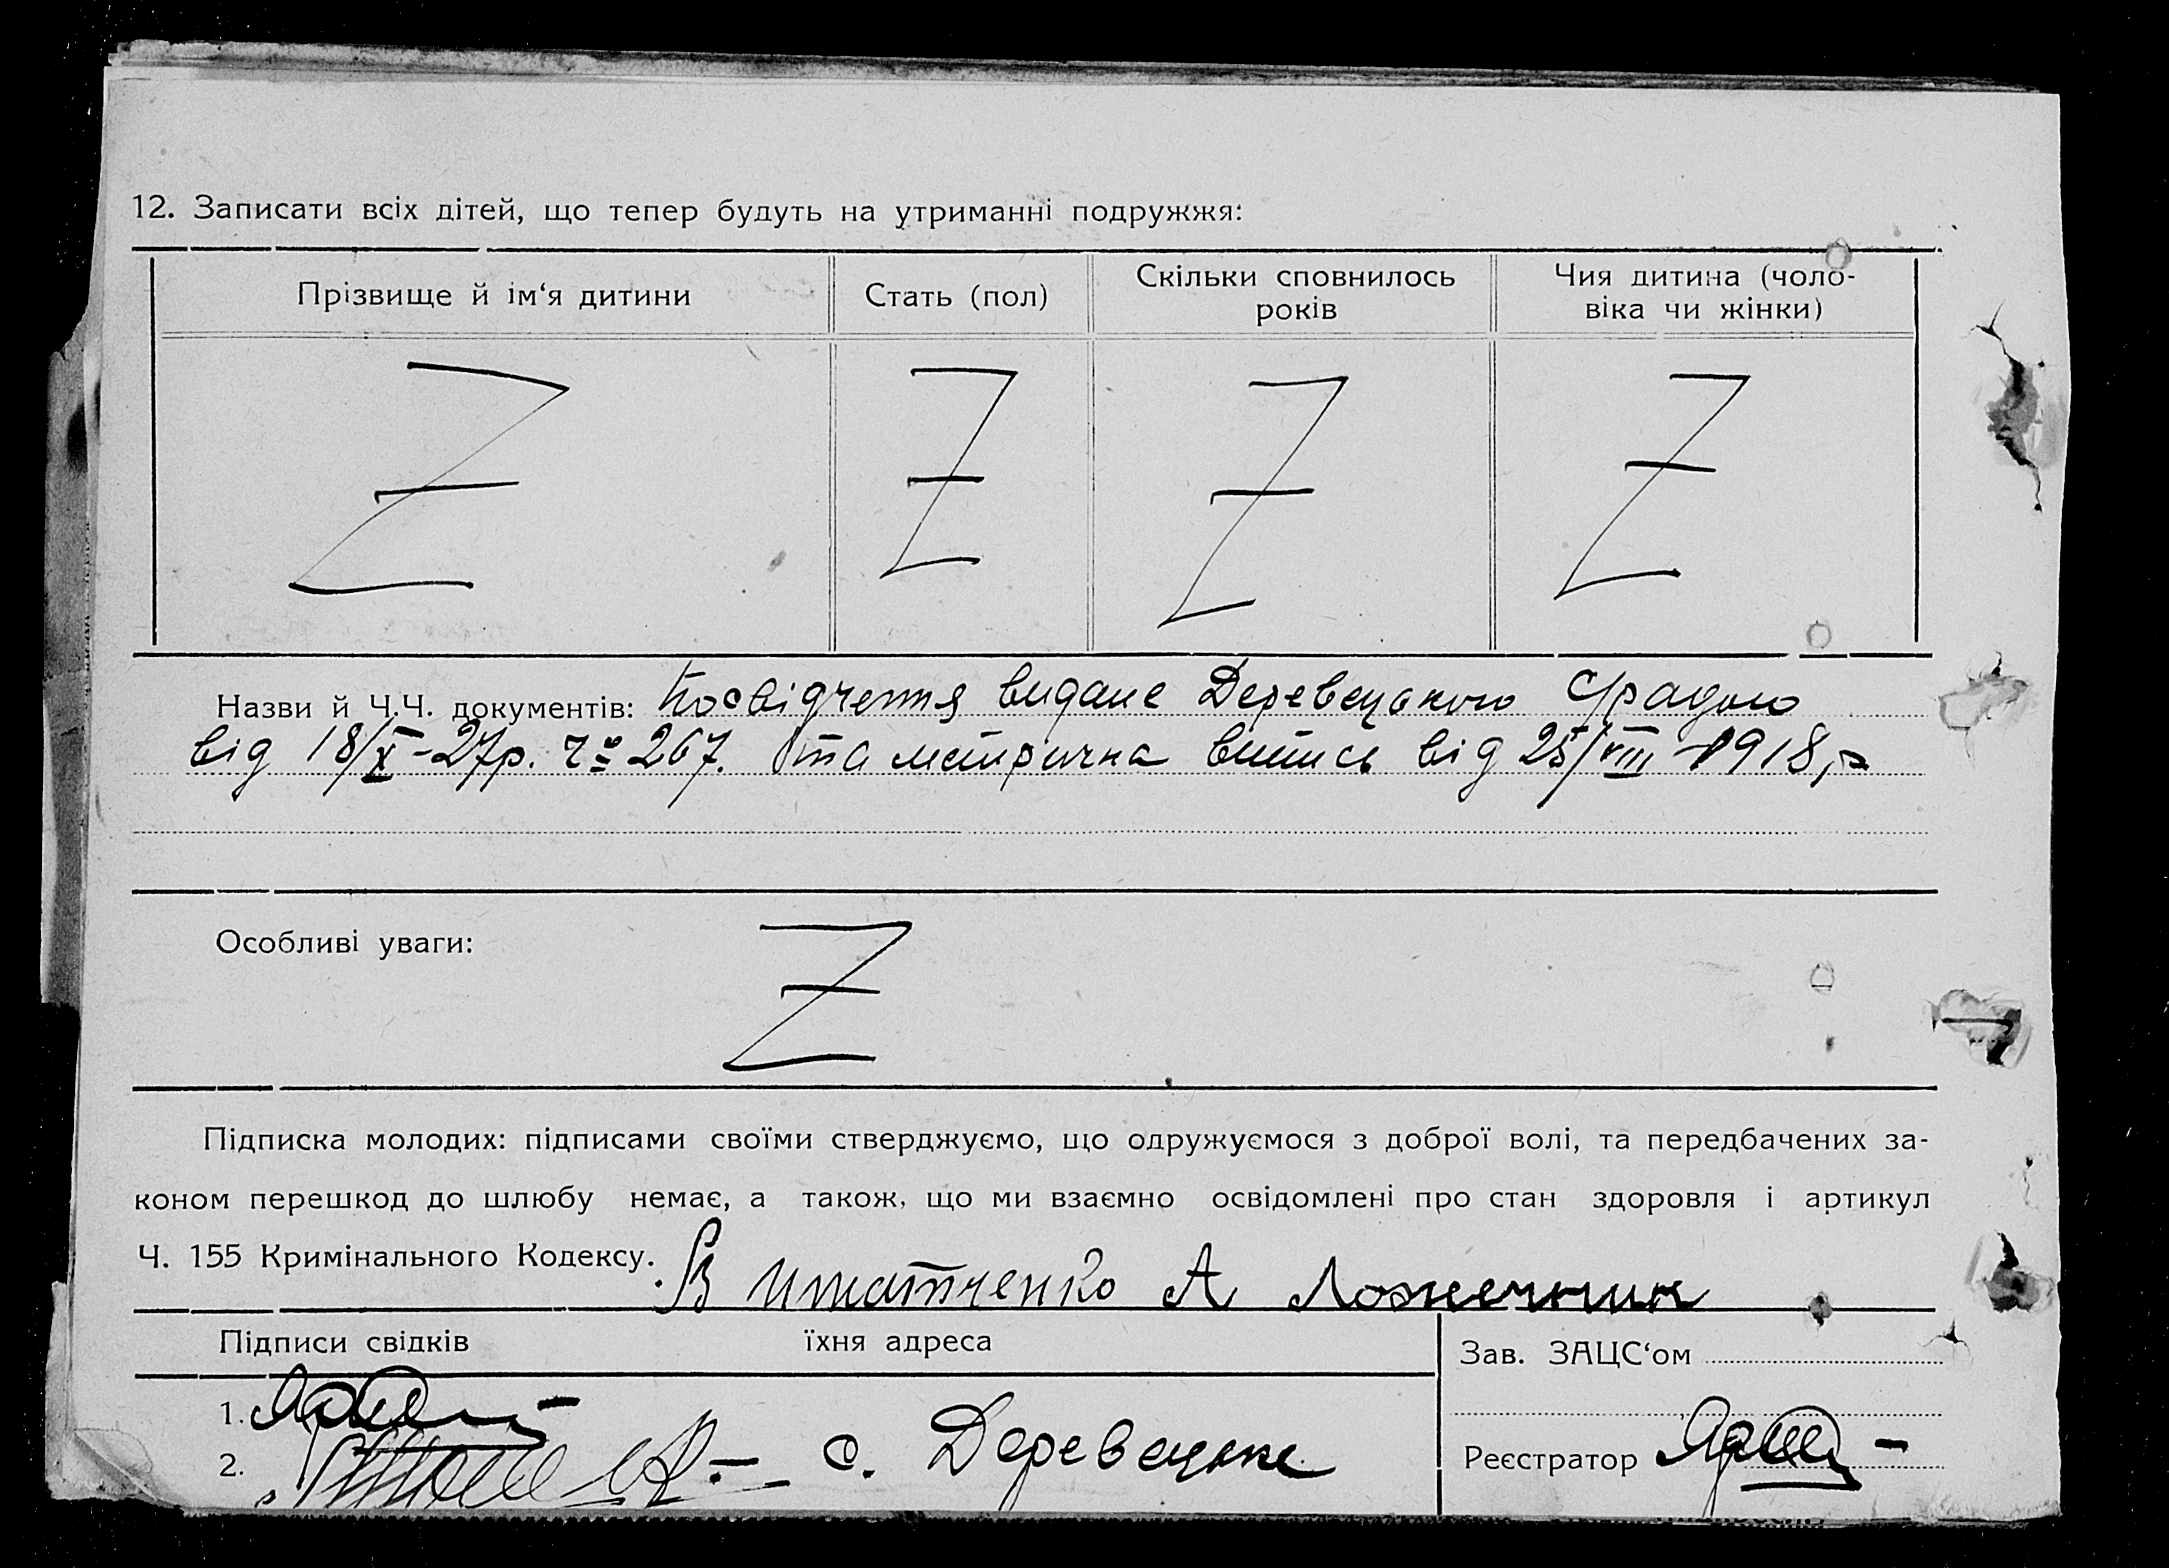 12. Записати всіх дітей, що тепер будуть на утриманні подружжя:
Прізвище й ім‘я дитини
Стать (пол)
Скільки сповнилось
років
Чия дитина (чоло-
віка чи жінки)
Z Z Z Z
Назви й Ч.Ч. документів: Посвідчення видане Деревецькою с/радою
від 18/X-27р. ч⁰ 267. та метрична випись від 25/VIII 1918 р
Особливі уваги:
Z
Підписка молодих: підписами своїми стверджуємо, що одружуємося з доброї волі, та передбачених за-
коном перешкод до шлюбу немає, а також, що ми взаємно освідомлені про стан здоровля і артикул
Ч. 155 Кримінального Кодексу.
В А
Підписи свідків їхня адреса
Зав. ЗАЦС‘ом
1.
2. с. Деревецьке
Реєстратор